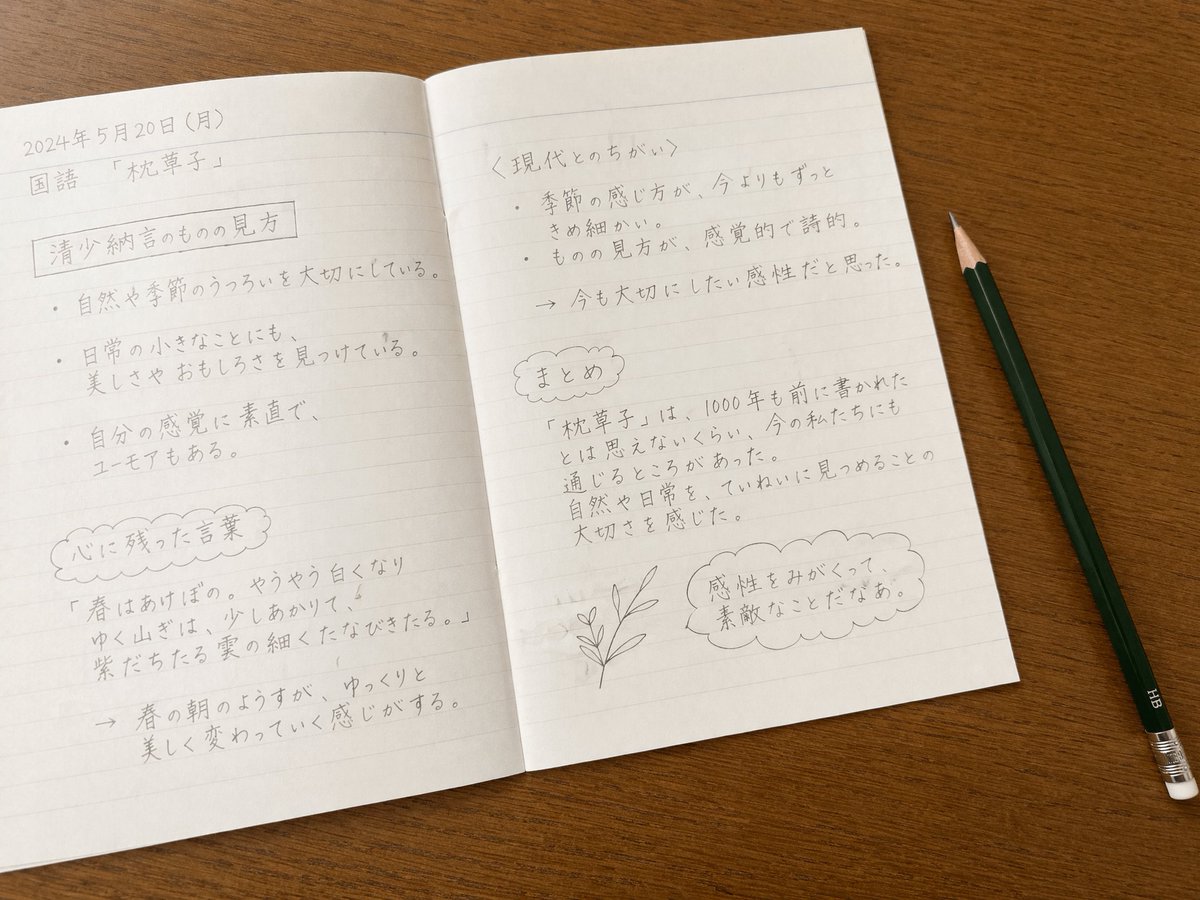 2024年5月20日(月)
国語 「枕草子」
清少納言のものの見方
・自然や季節のうつろいを大切にしている。
・日常の小さなことにも、
美しさや おもしろさを見つけている。
・自分の感覚に素直で、
ユーモアもある。
心に残った言葉
「春はあけぼの。やうやう白くなり
ゆく山ぎは、少しあかりて、
紫だちたる雲の細くたなびきたる。」
→ 春の朝のようすが、ゆっくりと
美しく変わっていく感じがする。
〈現代とのちがい〉
・季節の感じ方が、今よりもずっと
きめ細かい。
・ものの見方が、感覚的で詩的。
→ 今も大切にしたい感性だと思った。
まとめ
「枕草子」は、1000年も前に書かれた
とは思えないくらい、今の私たちにも
通じるところがあった。
自然や日常を、ていねいに見つめることの
大切さを感じた。
感性をみがくって、
素敵なことだなあ。
HB